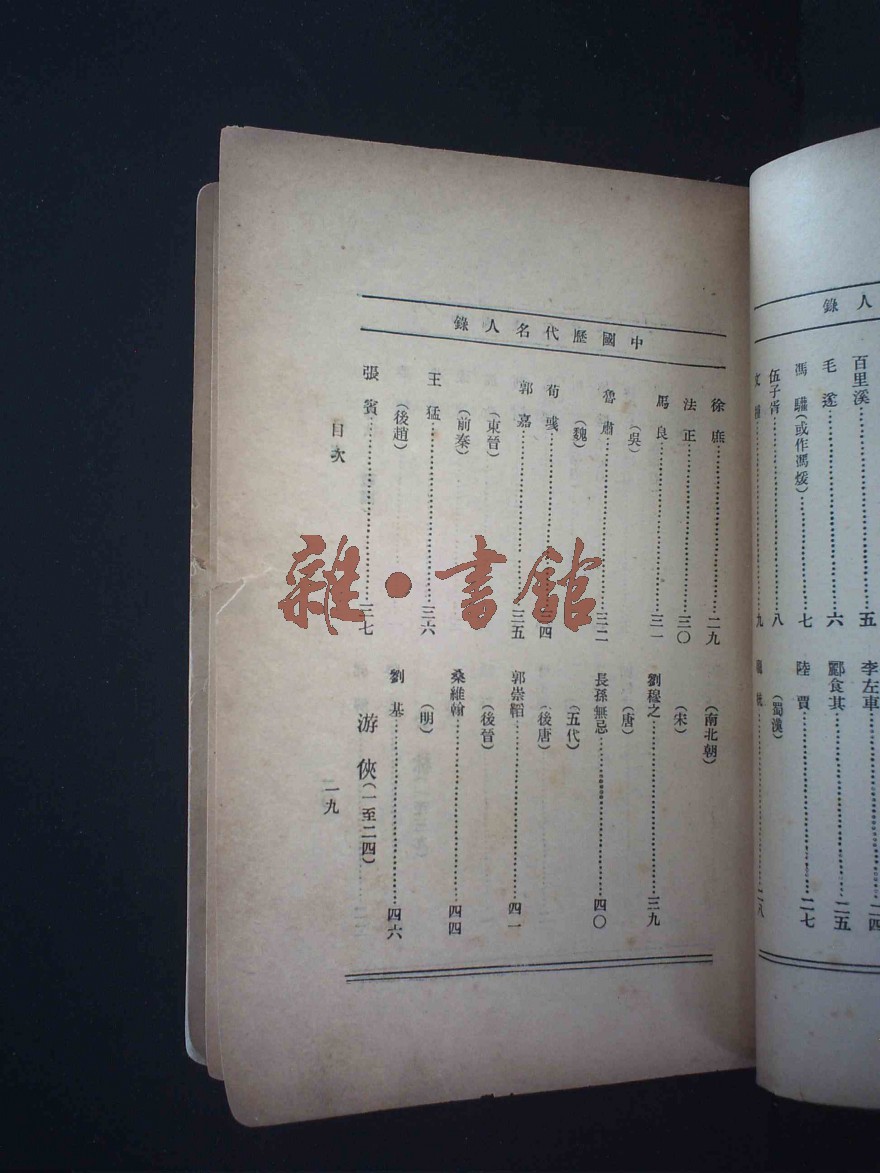 人錄
百里溪……五
毛遂……六
馮驩(或作馮煖)……七
伍子胥……八
……九
李左車……二四
酈食其……二五
陸賈……二七
(蜀漢)
……二八
中國歷代名人錄
徐庶……二九
法正……三〇
馬良……三一
(吳)
魯肅……三二
(魏)
荀彧……四
郭嘉……三五
(東晉)
(前秦)
王猛……三六
(後趙)
張賓……三七
(南北朝)
(宋)
劉穆之……三九
(唐)
長孫無忌……四〇
(五代)
(後唐)
郭崇韜……四一
(後晉)
桑維翰……四四
(明)
劉基……四六
游俠(一至二四)
目次
一九
雜·書館